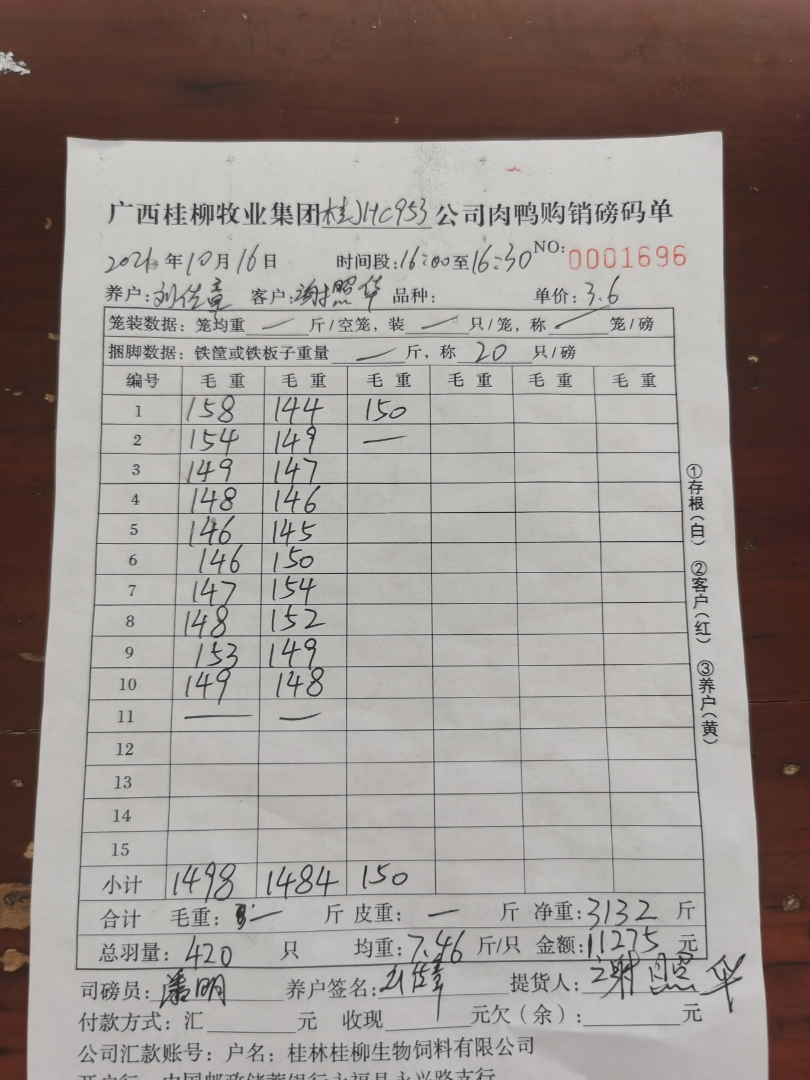 广西桂柳牧业集团桂JHC953公司肉鸭购销磅码单
2021年10月16日 时间段:16:00至16:30 NO:0001696
养户:刘佐童 客户:谢照华 品种: 单价:3.6
笼装数据:笼均重 — 斤/空笼,装 — 只/笼,称 — 笼/磅
捆脚数据:铁筐或铁板子重量 — 斤,称 20 只/磅
编号 毛重 毛重 毛重 毛重 毛重 毛重
1 158 144 150
2 154 149 —
3 149 147
4 148 146
5 146 145
6 146 150
7 147 154
8 148 152
9 153 149
10 149 148
11 — —
12
13
14
15
小计 1498 1484 150
合计 毛重: — 斤 皮重: — 斤 净重:3132 斤
总羽量:420 只 均重:7.46 斤/只 金额:11275 元
司磅员: 养户签名: 提货人:谢照华
付款方式:汇 元 收现 元欠(余): 元
公司汇款账号:户名:桂林桂柳生物饲料有限公司
开户行:中国邮政储蓄银行永福县永兴路支行
①存根(白) ②客户(红) ③养户(黄)